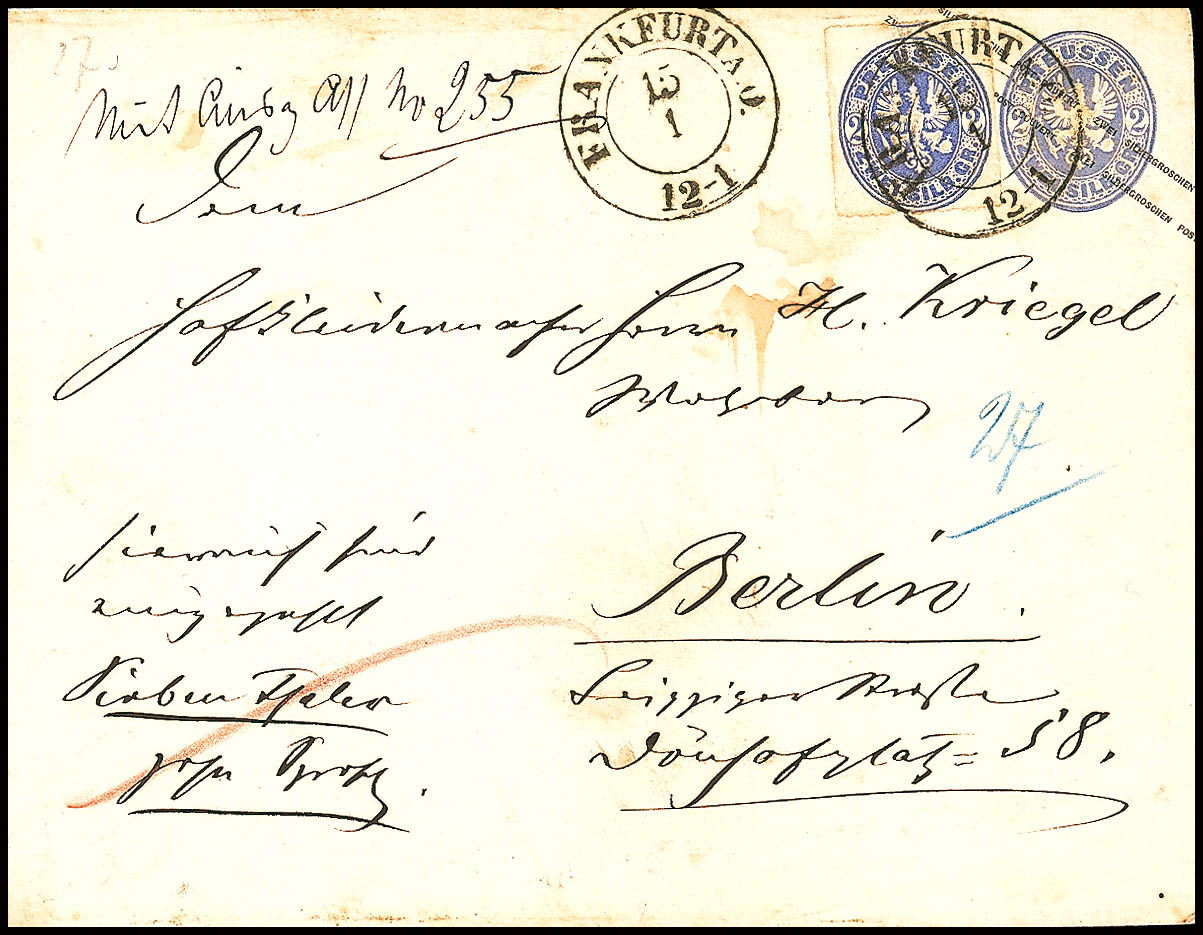 27.
FRANKFURT A. O.
15
1
12-1
PREUSSEN
2 2
ZWEI SILB. GR.
PREUSSEN
2
ZWEI SILB. GR.
FRANKFURT A. O.
12-1
ZWEI SILBERGROSCHEN
SILBERGROSCHEN POST
Mit No 255
Dem
Hofkleidermacher Herrn H. Kriegel
Wohlgeboren
27
Hierauf sind
eingezahlt
Sieben Thaler
zehn
Berlin.
Leipziger Straße
Dönhofplatz = 58.